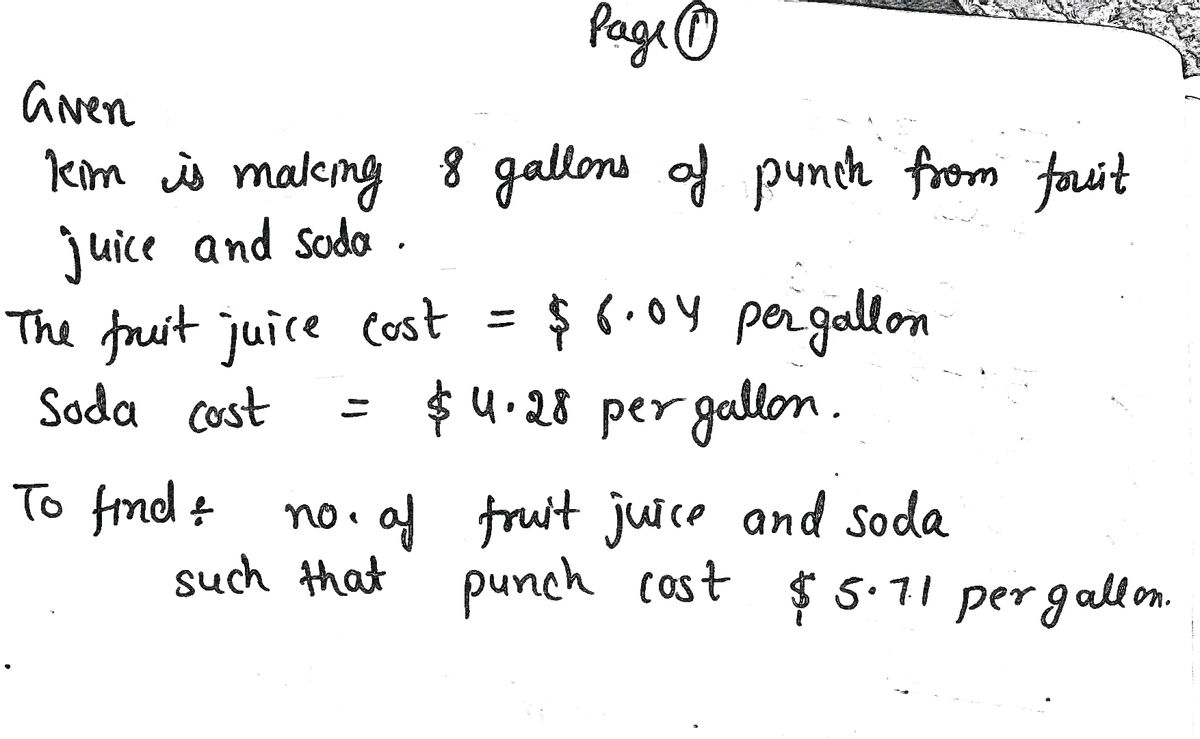 Page ①
Given
Kim is making 8 gallons of punch from fruit
juice and soda.
The fruit juice cost = $ 6.04 per gallon
Soda cost = $ 4.28 per gallon.
To find : no. of fruit juice and soda
such that punch cost $ 5.71 per gallon.